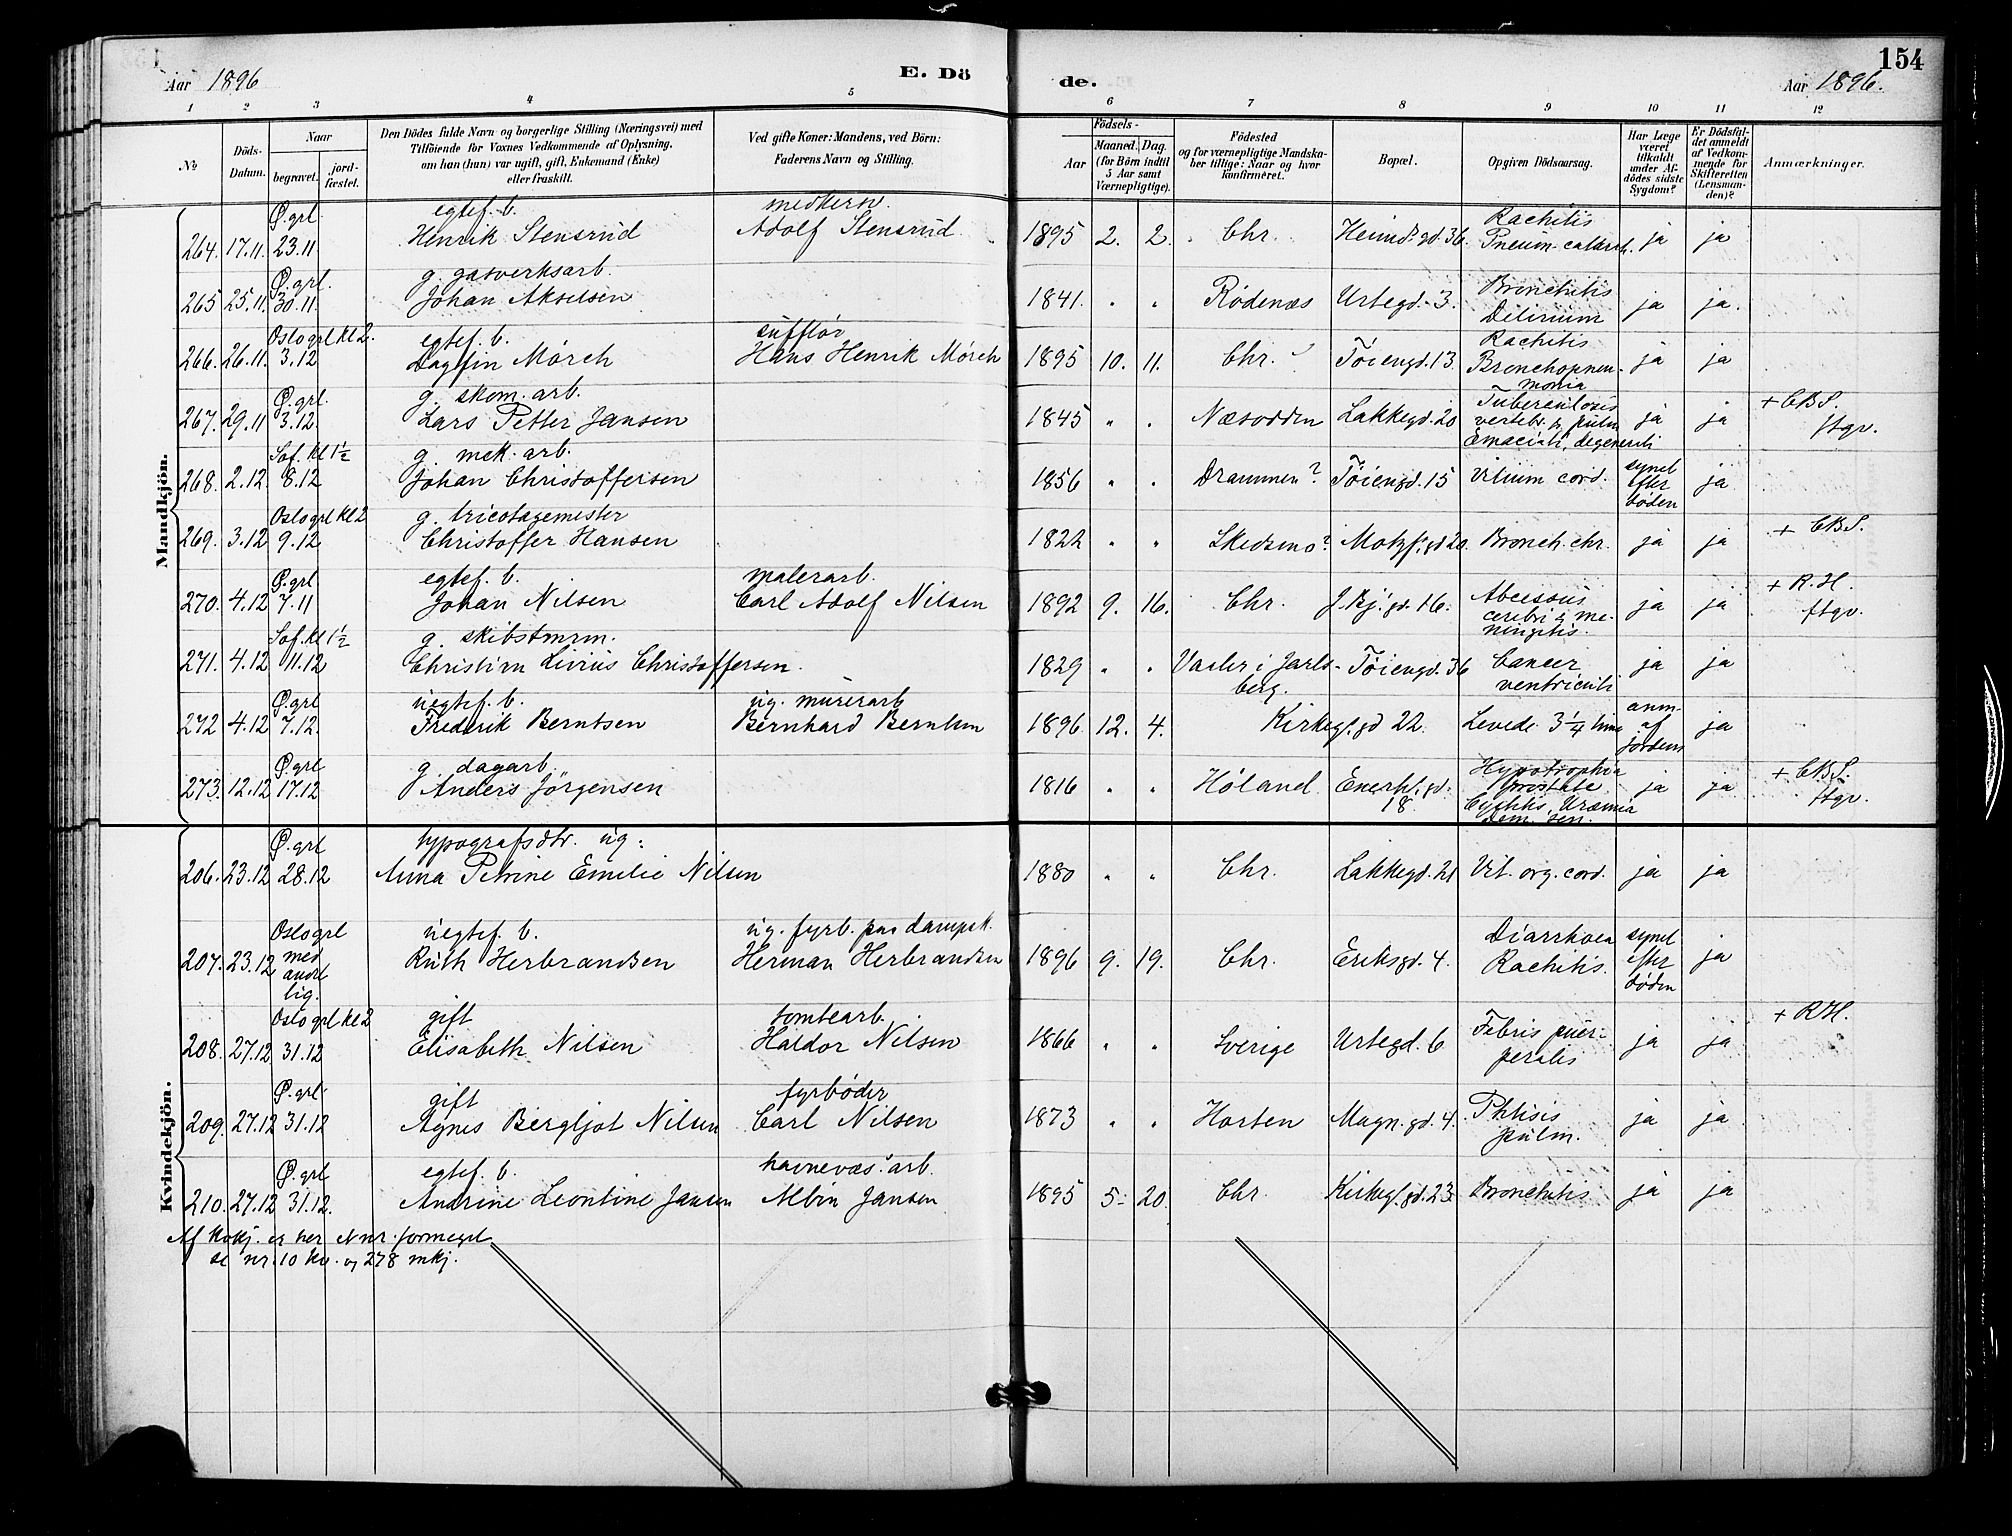 154
Aar 1896
E. Dö
de.
Aar 1896.
1 2 3 4 5 6 7 8 9 10 11 12
No
Döds-Datum.
Naar
begravet.
jord-fæstet.
Den Dödes fulde Navn og borgerlige Stilling (Næringsvei) med
Tilföiende for Voxnes Vedkommende af Oplysning,
om han (hun) var ugift, gift, Enkemand (Enke)
eller fraskilt.
Ved gifte Koner: Mandens, ved Börn:
Faderens Navn og Stilling.
Födsels-
Aar
Maaned. Dag.
(for Börn indtil
5 Aar samt
Værnepligtige).
Födested
og for værnepligtige Mandska-
ber tillige: Naar og hvor
konfirmeret.
Bopæl.
Opgiven Dödsaarsag.
Har Læge
været
tilkaldt
under Af-
dödes sidste
Sygdom?
Er Dödsfal-
det anmeldt
af Vedkom-
mende for
Skifteretten
(Lensman-
den)?
Anmærkninger.
Mandkjön.
Ø. grl. egtef. b.
264. 17.11. 23.11 Henrik Stensrud Adolf Stensrud 1895 2. 2. Chr. Heimd. gd. 36. Rachitis
Pneum. catarrh. ja ja
Ø. grl. g. gasverksarb.
265 25.11. 30.11 Johan Akselsen 1841. " " Rødenæs Urtegd. 3. Bronchitis
Delirium ja ja.
Oslo grl kl 2. egtef. b. sufflør
266. 26.11. 3.12 Dagfin Mörch Hans Henrik Mörch 1895 10. 11. Chr. Töiengd. 13. Rachitis
Bronchopneu-
monia ja ja
Ø. grl. g. skom. arb.
267. 29.11 3.12 Lars Petter Jansen 1845 " " Næsodden Lakkegd. 20 Tuberculosis
vertebr. & pulm
Emaciati, degenerati ja ja + CBS.
ftgv.
Sof. kl 1½ g. mek. arb.
268. 2.12. 8.12 Johan Christoffersen 1856 " " Drammen? Töiengd. 15 Vitium cord. synet
efter
døden ja
Oslo grl kl 2 g. tricotagemester
269. 3.12 9.12 Christoffer Hansen 1822 " " Skedsmo? Motzf. gd 20. Bronch. chr. ja ja + CBS.
Ø. grl egtef. b. malerarb.
270. 4.12 7.11 Johan Nilsen Carl Adolf Nilsen 1892 9. 16. Chr. J. Bj. gd. 16. Abcessus
cerebri & me-
ningitis. ja ja + R. H.
ftgv.
Sof. kl 1½
271. 4.12 11.12 Christian Livius Christoffersen. 1829 " " Vaaler i Jarls-
berg. Töiengd. 36 Cancer
ventriculi ja ja
Ø. grl uegtef. b. ug. murerarb
272 4.12 7.12. Frederik Berntsen Bernhard Berntsen 1896 12. 4. Kirkegf. gd 22. Levede 3¼ time anm.
af
jordem ja
Ø. grl g. dagarb.
273. 12.12 17.12 Anders Jörgensen 1816 " " Höland Enerh. gd.
18. Hypotrophia
prostate
Cystitis, Uræmia
Dem. sen. ja ja + CBS.
ftgv.
Kvindekjön.
Ø. grl typografsdtr. ug.
206. 23.12 28.12 Anna Petrine Emilie Nilsen 1880 " " Chr. Lakkegd. 21 Vit. org. cord. ja ja
Oslo grl uegtef. b. ug. fyrb. paa dampsk.
207. 23.12 med
andr
lig. Ruth Herbrandsen Herman Herbrandsen 1896 9. 19. Chr. Eriksgd. 4. Diarrhoea
Rachitis. synet
efter
døden ja
Oslo grl kl 2 gift tomtearb.
208. 27.12 31.12 Elisabeth Nilsen Haldor Nilsen 1866 " " Sverige Urtegd. 6 Febris puer-
peralis ja ja + RH.
Ø. grl gift fyrbøder
209. 27.12 31.12 Agnes Bergljot Nilsen Carl Nilsen 1873 " " Horten Magn. gd. 4. Phtisis
pulm. ja ja
Ø. grl egtef. b. havnevæs. arb.
210. 27.12 31.12. Andrine Leontine Jansen Albin Jansen 1895 5. 20. Chr. Kirkegf. gd. 23 Bronchitis ja ja
Af kvkj. er her nr. formeget
se nr. 10 kv. og 278 mkj.